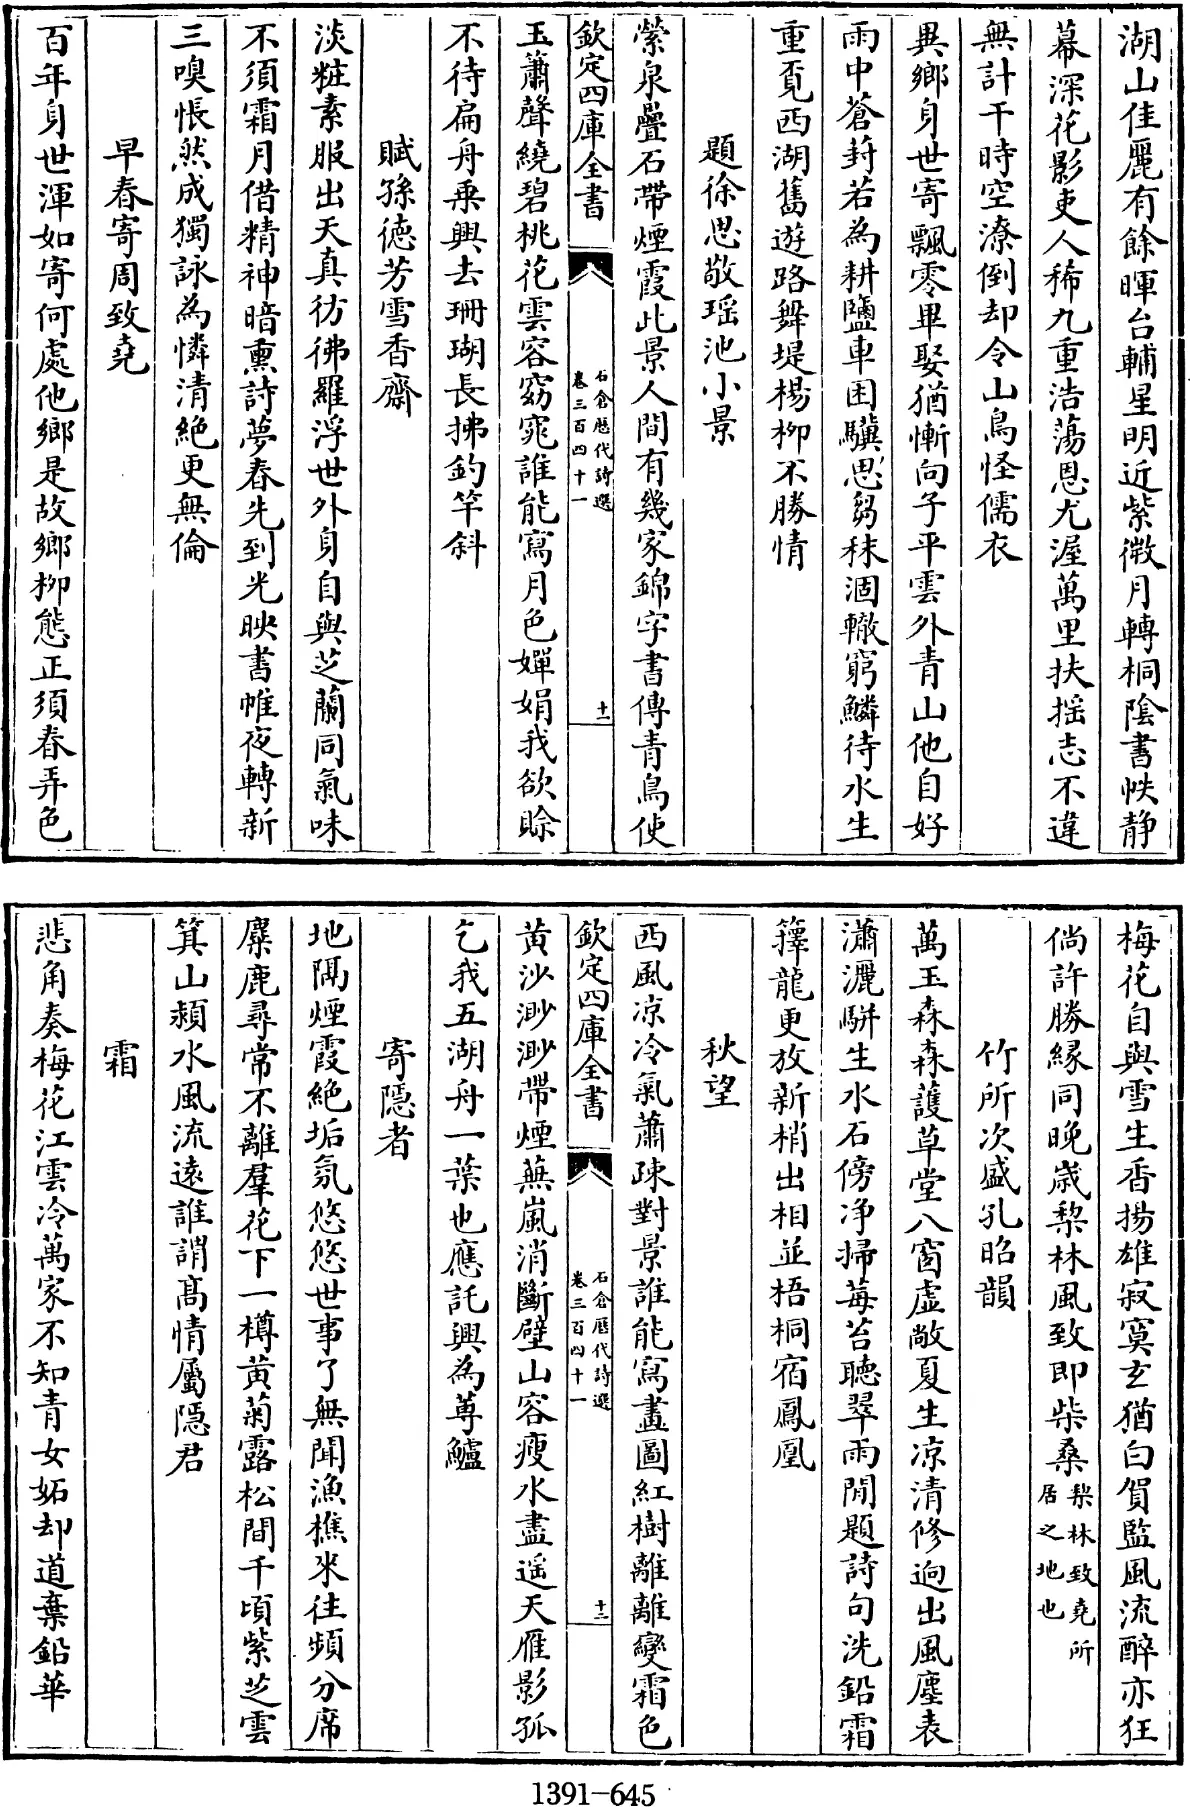 湖山佳麗有餘暉台輔星明近紫微月轉桐陰書帙静
幕深花影吏人稀九重浩蕩恩尤渥萬里扶摇志不違
無計干時空潦倒却令山鳥怪儒衣
異鄉身世寄飄零畢娶猶慚向子平雲外青山他自好
雨中蒼葑若為耕鹽車困驥思芻秣涸轍窮鱗待水生
重覔西湖舊遊路舞堤楊柳不勝情
題徐思敬瑶池小景
縈泉疊石帶煙霞此景人間有幾家錦字書傳青鳥使
欽定四庫全書
石倉歷代詩選
卷三百四十一
十一
玉簫聲繞碧桃花雲容窈窕誰能寫月色嬋娟我欲賒
不待扁舟乘興去珊瑚長拂釣竿斜
賦孫徳芳雪香齋
淡粧素服出天真彷彿羅浮世外身自與芝蘭同氣味
不須霜月借精神暗熏詩夢春先到光映書帷夜轉新
三嗅悵然成獨詠為憐清絶更無倫
早春寄周致堯
百年身世渾如寄何處他鄉是故鄉柳態正須春弄色
梅花自與雪生香揚雄寂寞玄猶白賀監風流醉亦狂
倘許勝緣同晚歳梨林風致即柴桑
梨林致堯所
居之地也
竹所次盛孔昭韻
萬玉森森護草堂八窗虛敞夏生凉清修逈出風塵表
瀟灑駢生水石傍净掃莓苔聽翠雨閒題詩句洗鉛霜
籜龍更放新梢出相並梧桐宿鳳凰
秋望
西風凉冷氣蕭疎對景誰能寫畫圖紅樹離離變霜色
欽定四庫全書
石倉歷代詩選
卷三百四十一
十二
黄沙渺渺帶煙蕪嵐消斷壁山容瘦水盡遥天雁影孤
乞我五湖舟一葉也應託興為蓴鱸
寄隱者
地隔煙霞絶垢氛悠悠世事了無聞漁樵来往頻分席
麋鹿尋常不離羣花下一樽黄菊露松間千頃紫芝雲
箕山潁水風流遠誰謂髙情屬隠君
霜
悲角奏梅花江雲冷萬家不知青女妬却道棄鉛華
1391-645